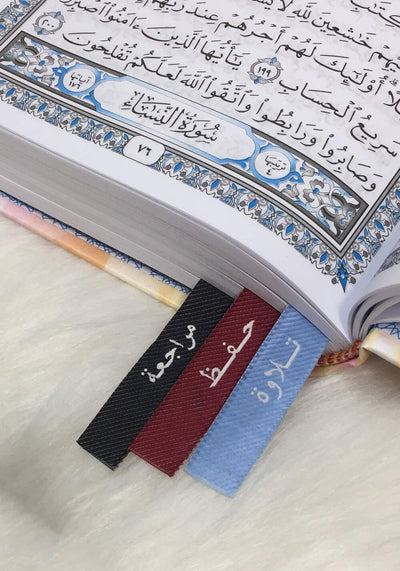 خَٰشِعِينَ لِلَّهِ لَا
لَهُمْ أَجْرُهُمْ عِندَ رَبِّهِمْ
أُو۟لَٰٓئِكَ
سَرِيعُ ٱلْحِسَابِ ١٩٩ يَٰٓأَيُّهَا ٱلَّذِينَ ءَامَنُوا۟ ٱصْبِرُوا۟
وَصَابِرُوا۟ وَرَابِطُوا۟ وَٱتَّقُوا۟ ٱللَّهَ لَعَلَّكُمْ تُفْلِحُونَ ٢٠٠
ترتيبها ٤ سُورَةُ النِّسَاءِ آياتها ١٧٦
٧٦
تلاوة
حفظ
مراجعة